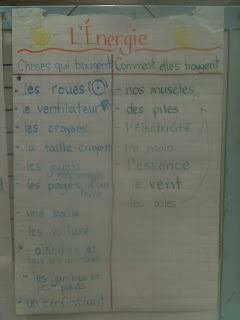 L'Énergie
Choses qui bougent
- les roues
- le ventilateur
- les crayons
- la taille-crayon
- les jouets
mécaniques
- les pages d'un
livre
- une balle
- les voiture
- oiseaux et
tous les animaux
- les jambes et
les pieds
- un cerf-volant
Comment elles bougent
- nos muscles
- des piles
- l'électricité
- main
- l'essence
- le vent
- les ailes